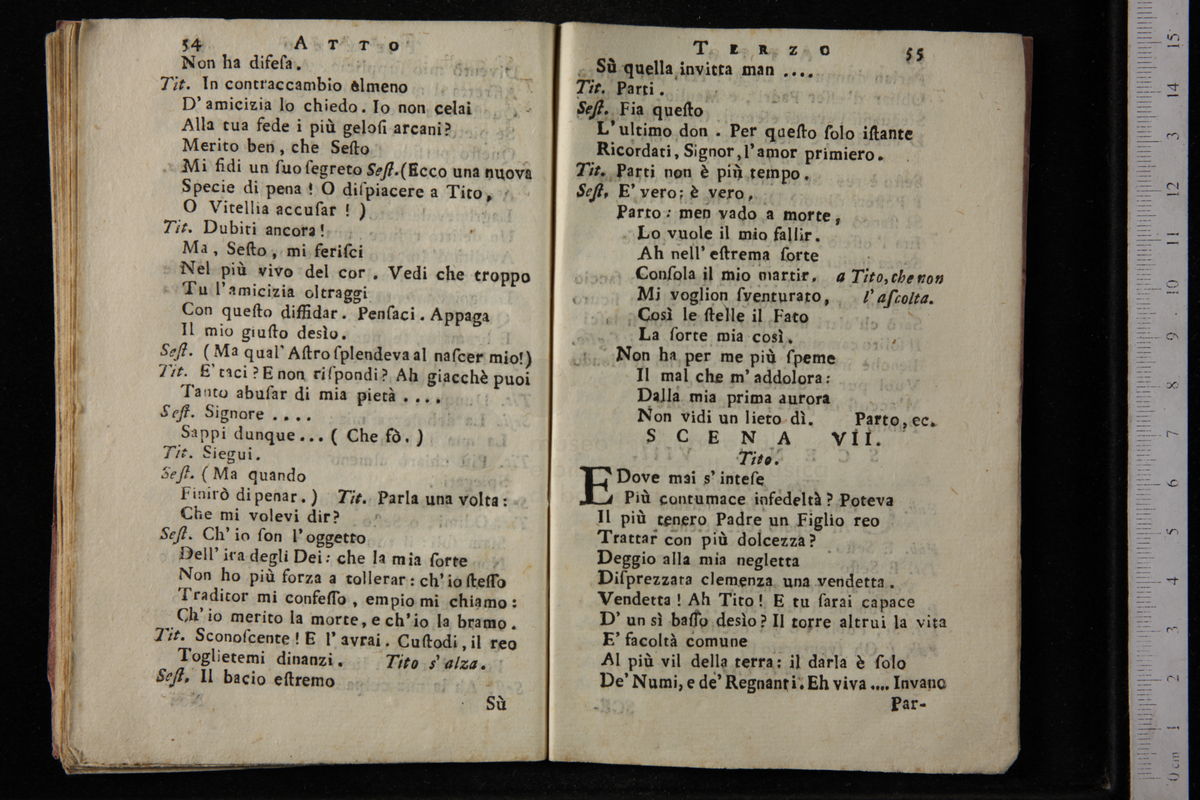 54 ATTO
Non ha difeſa.
Tit. In contraccambio almeno
D'amicizia lo chiedo. Io non celai
Alla tua fede i più geloſi arcani?
Merito ben, che Seſto
Mi fidi un ſuo ſegreto Seſt. (Ecco una nuova
Specie di pena! O diſpiacere a Tito,
O Vitellia accuſar!)
Tit. Dubiti ancora!
Ma, Seſto, mi feriſci
Nel più vivo del cor. Vedi che troppo
Tu l'amicizia oltraggi
Con queſto diffidar. Penſaci. Appaga
Il mio giuſto desìo.
Seſt. (Ma qual' Aſtro ſplendeva al naſcer mio!)
Tit. E' taci? E non riſpondi? Ah giacchè puoi
Tanto abuſar di mia pietà ....
Seſt. Signore ....
Sappi dunque... (Che fò.)
Tit. Siegui.
Seſt. (Ma quando
Finirò di penar.) Tit. Parla una volta:
Che mi volevi dir?
Seſt. Ch'io ſon l'oggetto
Dell'ira degli Dei: che la mia ſorte
Non ho più forza a tollerar: ch'io ſteſſo
Traditor mi confeſſo, empio mi chiamo:
Ch'io merito la morte, e ch'io la bramo.
Tit. Sconoſcente! E l'avrai. Cuſtodi, il reo
Toglietemi dinanzi. Tito s'alza.
Seſt. Il bacio eſtremo
Sù
TERZO 55
Sù quella invitta man ....
Tit. Parti.
Seſt. Fia queſto
L'ultimo don. Per queſto ſolo iſtante
Ricordati, Signor, l'amor primiero.
Tit. Parti non è più tempo.
Seſt. E' vero; è vero,
Parto: men vado a morte,
Lo vuole il mio fallir.
Ah nell'eſtrema ſorte
Conſola il mio martir. a Tito, che non
Mi voglion ſventurato, l'aſcolta.
Così le ſtelle il Fato
La ſorte mia così.
Non ha per me più ſpeme
Il mal che m'addolora:
Dalla mia prima aurora
Non vidi un lieto dì. Parto, ec.
SCENA VII.
Tito.
E Dove mai s'inteſe
Più contumace infedeltà? Poteva
Il più tenero Padre un Figlio reo
Trattar con più dolcezza?
Deggio alla mia negletta
Diſprezzata clemenza una vendetta.
Vendetta! Ah Tito! E tu ſarai capace
D'un sì baſſo desìo? Il torre altrui la vita
E' facoltà comune
Al più vil della terra: il darla è ſolo
De' Numi, e de' Regnanti. Eh viva .... Invano
Par-